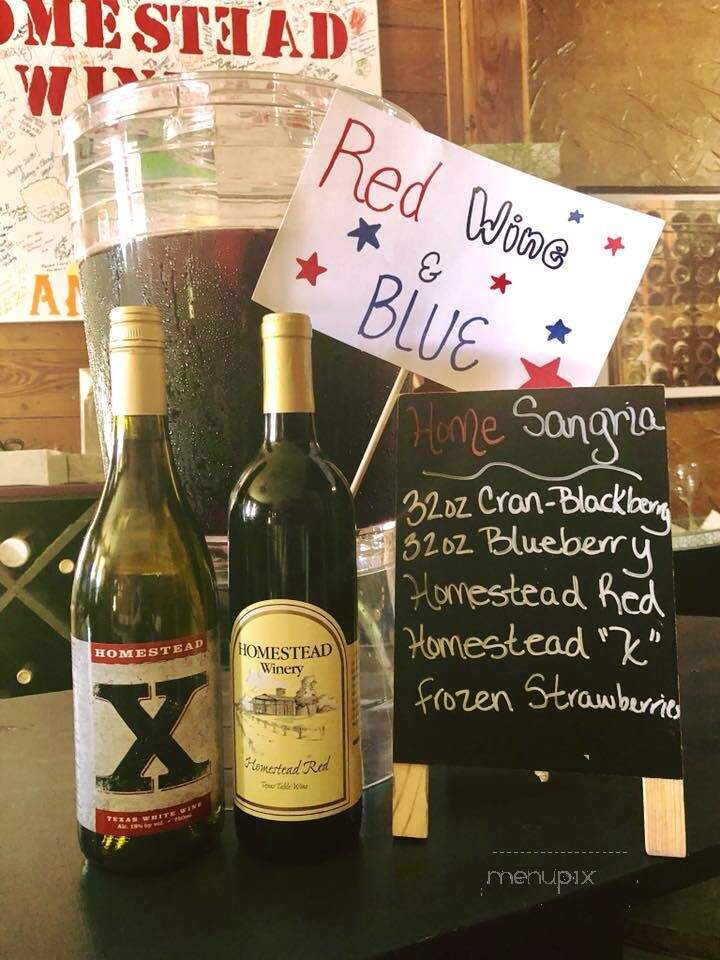 OMESTEAD
WIN
AN
Red Wine
&
BLUE
Home Sangria
32oz Cran-Blackberry
32oz Blueberry
Homestead Red
Homestead "X"
frozen Strawberries
HOMESTEAD
X
TEXAS WHITE WINE
Alc. 18% by vol. • 750ml
HOMESTEAD
Winery
Homestead Red
Texas Table Wine
menupix